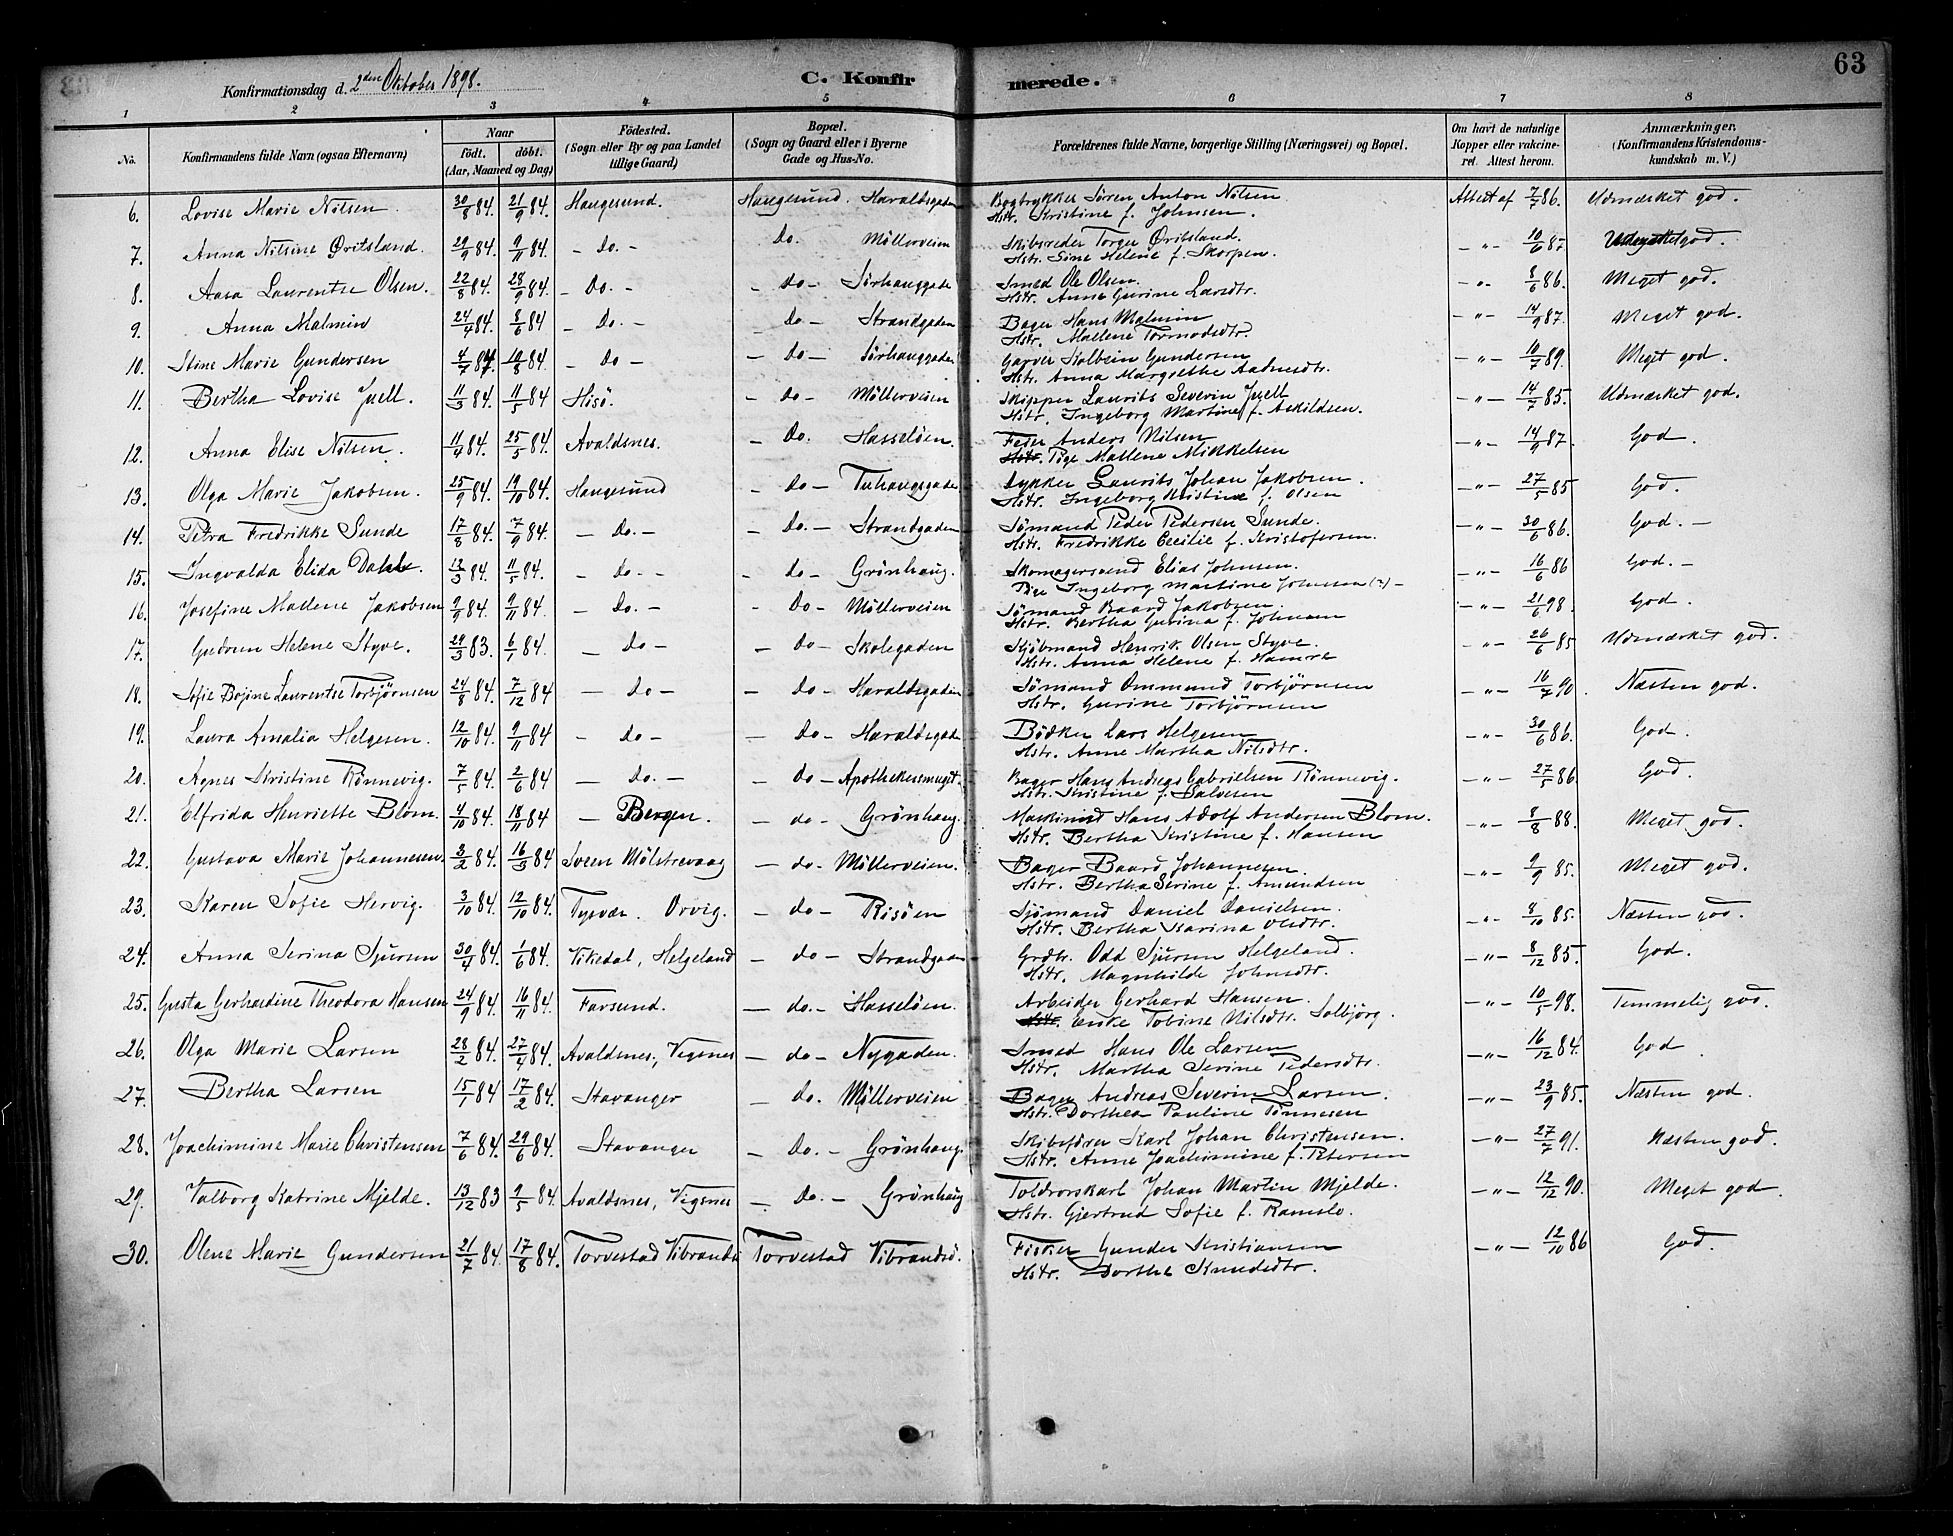 63
Konfirmationsdag d. 2den Oktober 1898.
C. Konfirmerede.
1 2 3 4 5 6 7 8
No. Konfirmandens fulde Navn (ogsaa Efternavn) Naar födt. döbt. (Aar, Maaned og Dag) Födested. (Sogn eller By og paa Landet tillige Gaard) Bopæl. (Sogn og Gaard eller i Byerne Gade og Hus-No. Forældrenes fulde Navne, borgerlige Stilling (Næringsvei) og Bopæl. Om havt de naturlige Kopper eller vakcineret. Attest herom. Anmærkninger. (Konfirmandens Kristendomskundskab m. V.)
6. Lovise Marie Nilsen. 30/8 84. 21/9 84. Haugesund. Haugesund. Haraldsgaden Bogtrykker Sören Anton Nilsen Attest af 7/7 86. Udmærket god.
Hstr. Kristine f. Johnsen.
7. Anna Nilsine Öritsland. 29/9 84. 9/11 84. - Do. - Do. Möllerveien Skibsreder Torger Öritsland. - " - 10/6 87. god.
Hstr. Sine Helene f. Skorpen.
8. Aasa Laurentse Olsen. 22/8 84. 28/9 84. - Do. - - do - Sörhauggade Smed Ole Olsen. - " - 8/6 86. Meget god.
Hstr. Anne Gurine Larsdtr.
9. Anna Malmin 24/4 84. 8/6 84 - Do. - - do - Strandgaden Bager Hans Malmin - " - 14/9 87. Meget god.
Hstr. Mallene Tormodsdtr.
10. Stine Marie Gundersen 4/7 84. 10/8 84 - Do - - Do - Sörhauggaden Garver Kolbein Gundersen - " - 10/7 89. Meget god.
Hstr. Anna Margrethe Aadnesdtr.
11. Bertha Lovise Juell. 11/3 84. 11/5 84 Hisö. - do - Möllerveien Skipper Laurits Severin Juell - " - 14/7 85. Udmærket god.
Hstr. Ingeborg Martine f. Askildsen.
12. Anna Elise Nilsen. 11/4 84. 25/5 84. Avaldsnes. - Do. Hasselöen. Anders Nilsen - " - 14/9 87. God.
Hstr. Pige Mallene Mikkelsen
13. Olga Marie Jakobsen. 25/9 84. 19/10 84. Haugesund - do - Tuhauggaden Dykker Laurits Johan Jakobsen. - " - 27/5 85 God.
Hstr. Ingeborg Kristine f. Olsen
14. Petra Fredrikke Sunde 17/8 84. 7/9 84. - Do. - - Do. - Strandgaden Sömand Peder Pedersen Sunde. - " - 30/6 86. God. -
Hstr. Fredrikke Cecilie f. Kristofersen.
15. Ingvalda Elida Dahle. 12/3 84. 11/5 84. - Do. - - do - Grönhaug. Skomagersvend Elias Johnsen. - " - 16/6 86 God. -
Pige Ingeborg Martine Johnsen (?) -
16. Josefine Mallene Jakobsen 9/9 84. 9/11 84. - Do. - - Do - Möllerveien Sömand Baard Jakobsen - " - 21/6 98. God.
Hstr. Bertha Gurina f. Johnsen
17. Gudrun Helene Styve. 29/3 83. 6/1 84. - Do - - do - Skolegaden Kjöbmand Henrik Olsen Styve. - " - 26/6 85 Udmærket god.
Hstr. Anna Helene f. Hamre
18. Sofie Bojine Laurentse Torbjörnsen 24/8 84. 7/12 84 - Do - - do - Haraldsgaden Sömand Ommund Torbjörnsen - " - 16/7 90. Næsten god.
Hstr. Gurine Torbjörnsen
19. Laura Amalia Helgesen. 12/10 84. 9/11 84 - Do - - Do - Haraldsgade Bödker Lars Helgesen - " - 30/6 86. God.
Hstr. Anne Martha Nilsdtr.
20. Agnes Kristine Rönnevig. 7/5 84. 2/6 84 - do. - - do - Apothekersmuget. Bager Hans Andreas Gabrielsen Rönnevig. - " - 27/5 86 God.
Hstr. Kristine f. Salvesen
21. Elfrida Henriette Blom. 4/10 84. 18/11 84 - Bergen. - do - Grönhaug. Maskinist Hans Adolf Andersen Blom. - " - 8/8 88. Meget god.
Hstr. Bertha Kristine f. Hansen
22. Gustava Marie Johannesen. 3/2 84. 16/3 84 Sveen Mölstrevaag - do - Möllerveien. Bager Baard Johannesen. - " - 9/9 85. Meget god.
Hstr. Bertha Serine f. Amundsen
23. Karen Sofie Hervig. 3/10 84. 12/10 84. Tysvær. Orvig. - do - Risöen Sjömand Daniel Danielsen. - " - 8/10 85. Næsten god.
Hstr. Bertha Karina Olsdtr.
24. Anna Serina Sjursen 30/4 84. 1/6 84. Vikedal, Helgeland - do - Strandgaden Grdbr. Odd Sjursen Helgeland. - " - 8/12 85. God.
Hstr. Magnhilde Johnsdtr.
25. Gusta Gerhardine Theodora Hansen 24/9 84. 16/11 84. Farsund. - do. - Hasselöen. Arbeider Gerhard Hansen. - " - 10/5 98. Temmelig god.
Hstr. Enke Tobine Nilsdtr. Solbjörg.
26. Olga Marie Larsen 28/2 84. 27/4 84. Avaldsnes, Vigsnes - do - Nygaden. Smed Hans Ole Larsen - " - 16/12 84. God.
Hstr. Martha Serine Pedersdtr.
27. Bertha Larsen 15/1 84 17/2 84. Stavanger - do. Möllerveien Bager Andreas Severin Larsen. - " - 23/9 85. Næsten god.
Hstr. Dorthea Pauline Tönnesen
28. Joachimine Marie Christensen 7/6 84. 29/6 84. Stavanger - Do. - Grönhaug. Skibsförer Karl Johan Christensen. - " - 27/7 91. Næsten god.
Hstr. Anne Joachimine f. Petersen
29. Valborg Katrine Mjelde. 13/12 83 9/5 84. Avaldsnes, Vigsnes - Do. - Grönhaug Toldrorskarl Johan Martin Mjelde. - " - 12/12 90. Meget god.
Hstr. Gjertrud Sofie f. Ramslo.
30. Olene Marie Gundersen 21/7 84. 17/8 84. Torvestad Vibrandsö Torvestad Vibrandsö. Fisker Gunder Kristiansen - " - 12/10 86 God.
Hstr. Dorthe Knudsdtr.